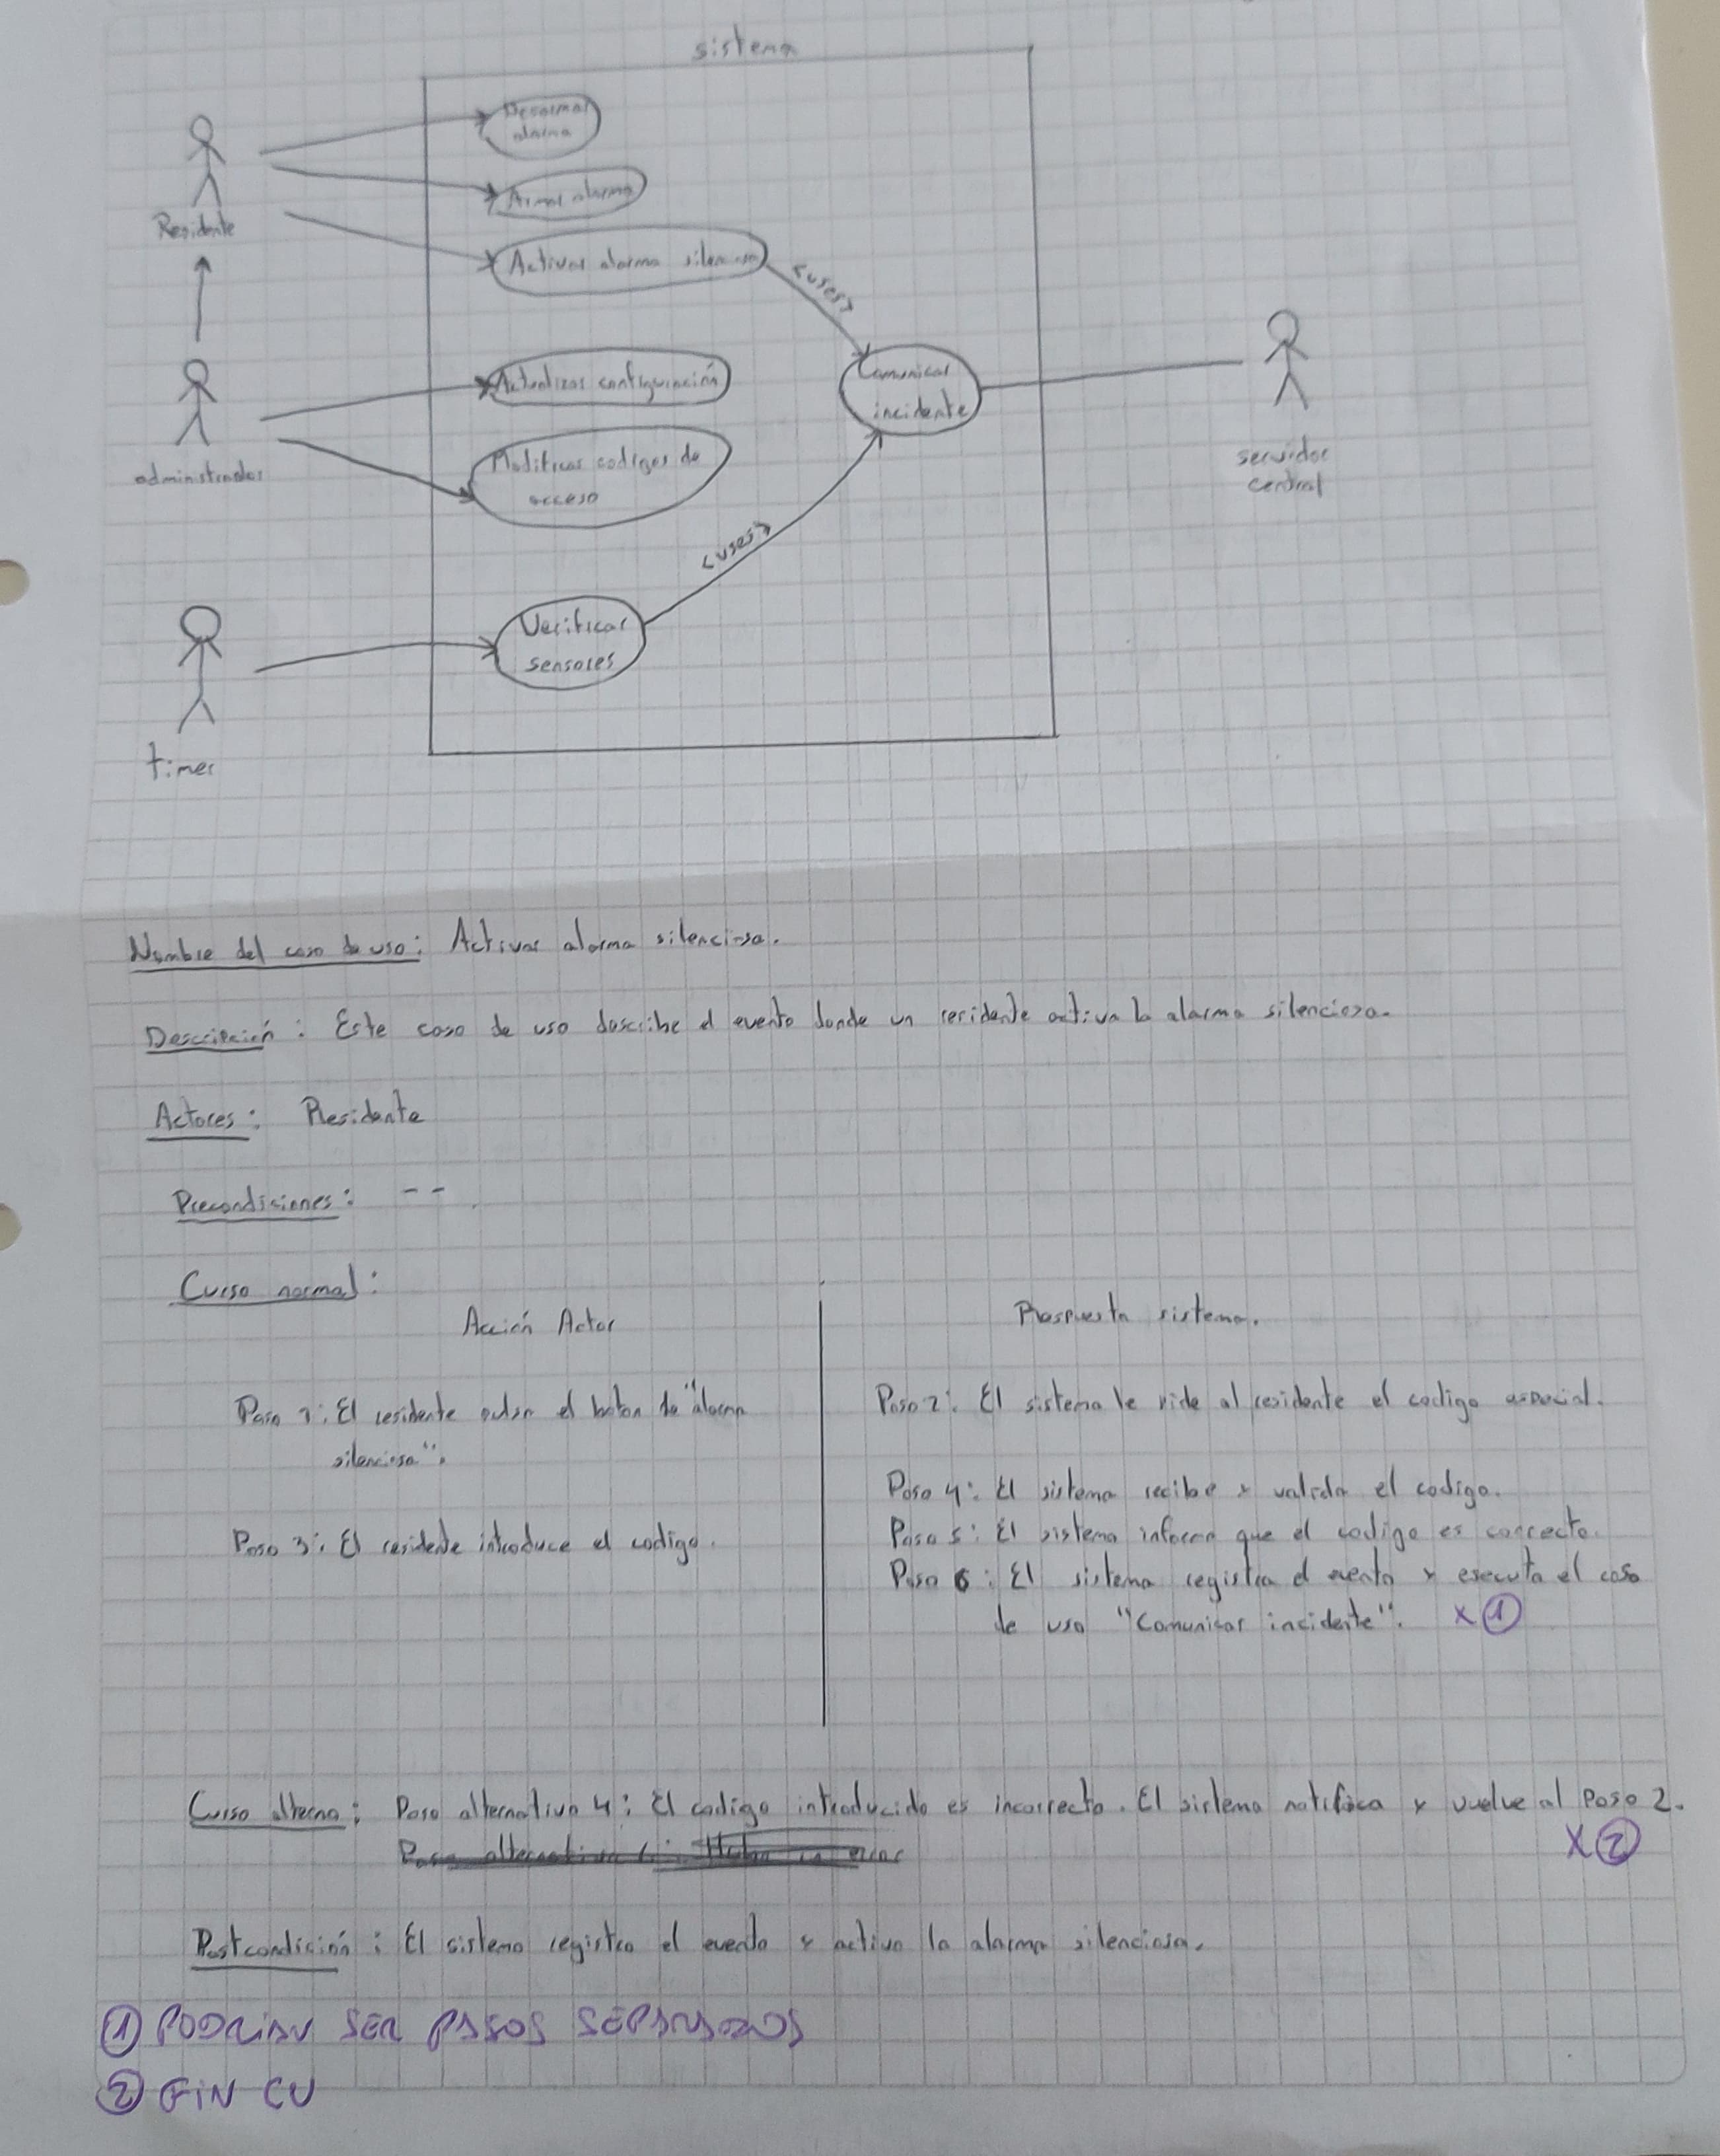 sistema
Desarmar
alarma
Armar alarma
Residente
Activar alarma silenciosa
<uses>
Actualizar configuración
Comunicar
incidente
administrador
Modificar codigos de
acceso
servidor
central
<uses>
Verificar
sensores
timer
Nombre del caso de uso: Activar alarma silenciosa.
Descripción: Este caso de uso describe el evento donde un residente activa la alarma silenciosa.
Actores: Residente
Precondiciones: --
Curso normal:
Acción Actor
Respuesta sistema.
Paso 1: El residente pulsa el boton de "alarma
silenciosa".
Paso 2: El sistema le pide al residente el codigo especial.
Paso 3: El residente introduce el codigo.
Paso 4: El sistema recibe y valida el codigo.
Paso 5: El sistema informa que el codigo es correcto.
Paso 6: El sistema registra el evento y executa el caso
de uso "Comunicar incidente". X ①
Curso alterno: Paso alternativo 4: El codigo introducido es incorrecto. El sistema notifica y vuelve al Paso 2.
X ②
Postcondición: El sistema registro el evento y activo la alarma silenciosa.
① PODRIAN SER PASOS SEPARADOS
② FIN CU